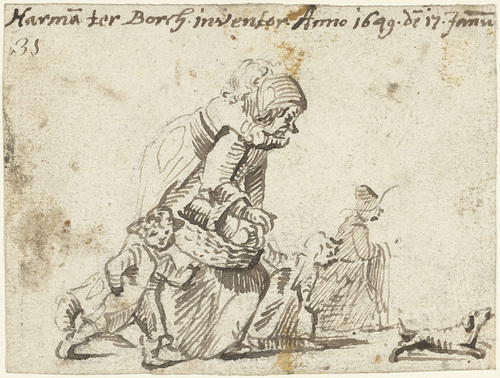 Harmā ter Borch. inventor Anno 1649. dē 17. Janūū
31